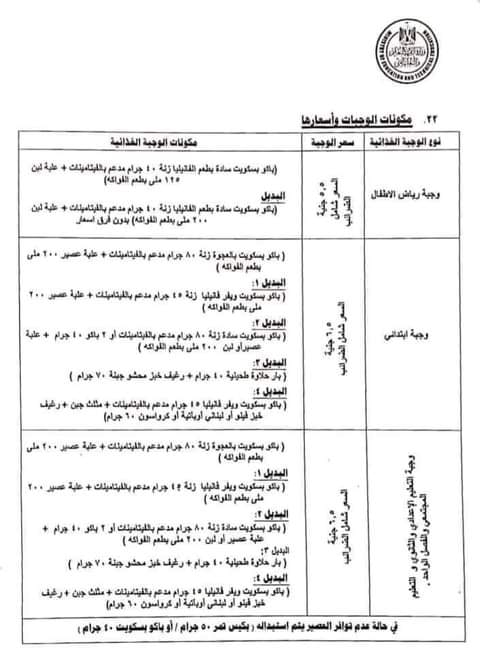 MINISTRY OF EDUCATION AND TECHNICAL EDUCATION
٢٢. مكونات الوجبات وأسعارها
نوع الوجبة الغذائية
سعر الوجبة
مكونات الوجبة الغذائية
وجبة رياض الاطفال
٥,٥ جنية
السعر شامل
الضرائب
(باكو بسكويت سادة بطعم الفانيليا زنة ٤٠ جرام مدعم بالفيتامينات + علبة لبن
١٢٥ ملى بطعم الفواكه)
البديل
(باكو بسكويت سادة بطعم الفانيليا زنة ٤٠ جرام مدعم بالفيتامينات + علبة لبن
٢٠٠ ملى بطعم الفواكه) بدون فرق اسعار
وجبة ابتدائي
٦,٥ جنية
السعر شامل الضرائب
( باكو بسكويت بالعجوة زنة ٨٠ جرام مدعم بالفيتامينات + علبة عصير ٢٠٠ ملى
بطعم الفواكه )
البديل ١:
( باكو بسكويت ويفر فانيليا زنة ٤٥ جرام مدعم بالفيتامينات + علبة عصير ٢٠٠
ملى بطعم الفواكه )
البديل ٢:
( باكو بسكويت سادة زنة ٨٠ جرام مدعم بالفيتامينات أو ٢ باكو ٤٠ جرام + علبة
عصير أو لبن ٢٠٠ ملى بطعم الفواكه )
البديل ٣:
( بار حلاوة طحينية ٤٠ جرام + رغيف خبز محشو جبنة ٧٠ جرام )
البديل ٤:
( باكو بسكويت ويفر فانيليا ٤٥ جرام مدعم بالفيتامينات + مثلث جبن + رغيف
خبز فينو أو لبناني أوباتية أو كرواسون ٦٠ جرام)
وجبة التعليم الإعدادي والثانوي و التعليم
المجتمعي والفصل الواحد .
٦,٥ جنية
السعر شامل الضرائب
( باكو بسكويت سادة زنة ٨٠ جرام مدعم بالفيتامينات + علبة عصير ٢٠٠ ملى
بطعم الفواكه )
البديل ١:
( باكو بسكويت ويفر فانيليا زنة ٤٥ جرام مدعم بالفيتامينات + علبة عصير ٢٠٠
ملى بطعم الفواكه )
البديل ٢:
( باكو بسكويت سادة زنة ٨٠ جرام مدعم بالفيتامينات أو ٢ باكو ٤٠ جرام +
علبة عصير أو لبن ٢٠٠ ملى بطعم الفواكه )
البديل ٣:
( بار حلاوة طحينية ٤٠ جرام + رغيف خبز محشو جبنة ٧٠ جرام )
البديل ٤:
( باكو بسكويت ويفر فانيليا ٤٥ جرام مدعم بالفيتامينات + مثلث جبن + رغيف
خبز فينو أو لبناني أو باتية أو كرواسون ٦٠ جرام)
في حالة عدم توافر العصير يتم استبداله ( بكيس تمر ٥٠ جرام / أو باكو بسكويت ٤٠ جرام )